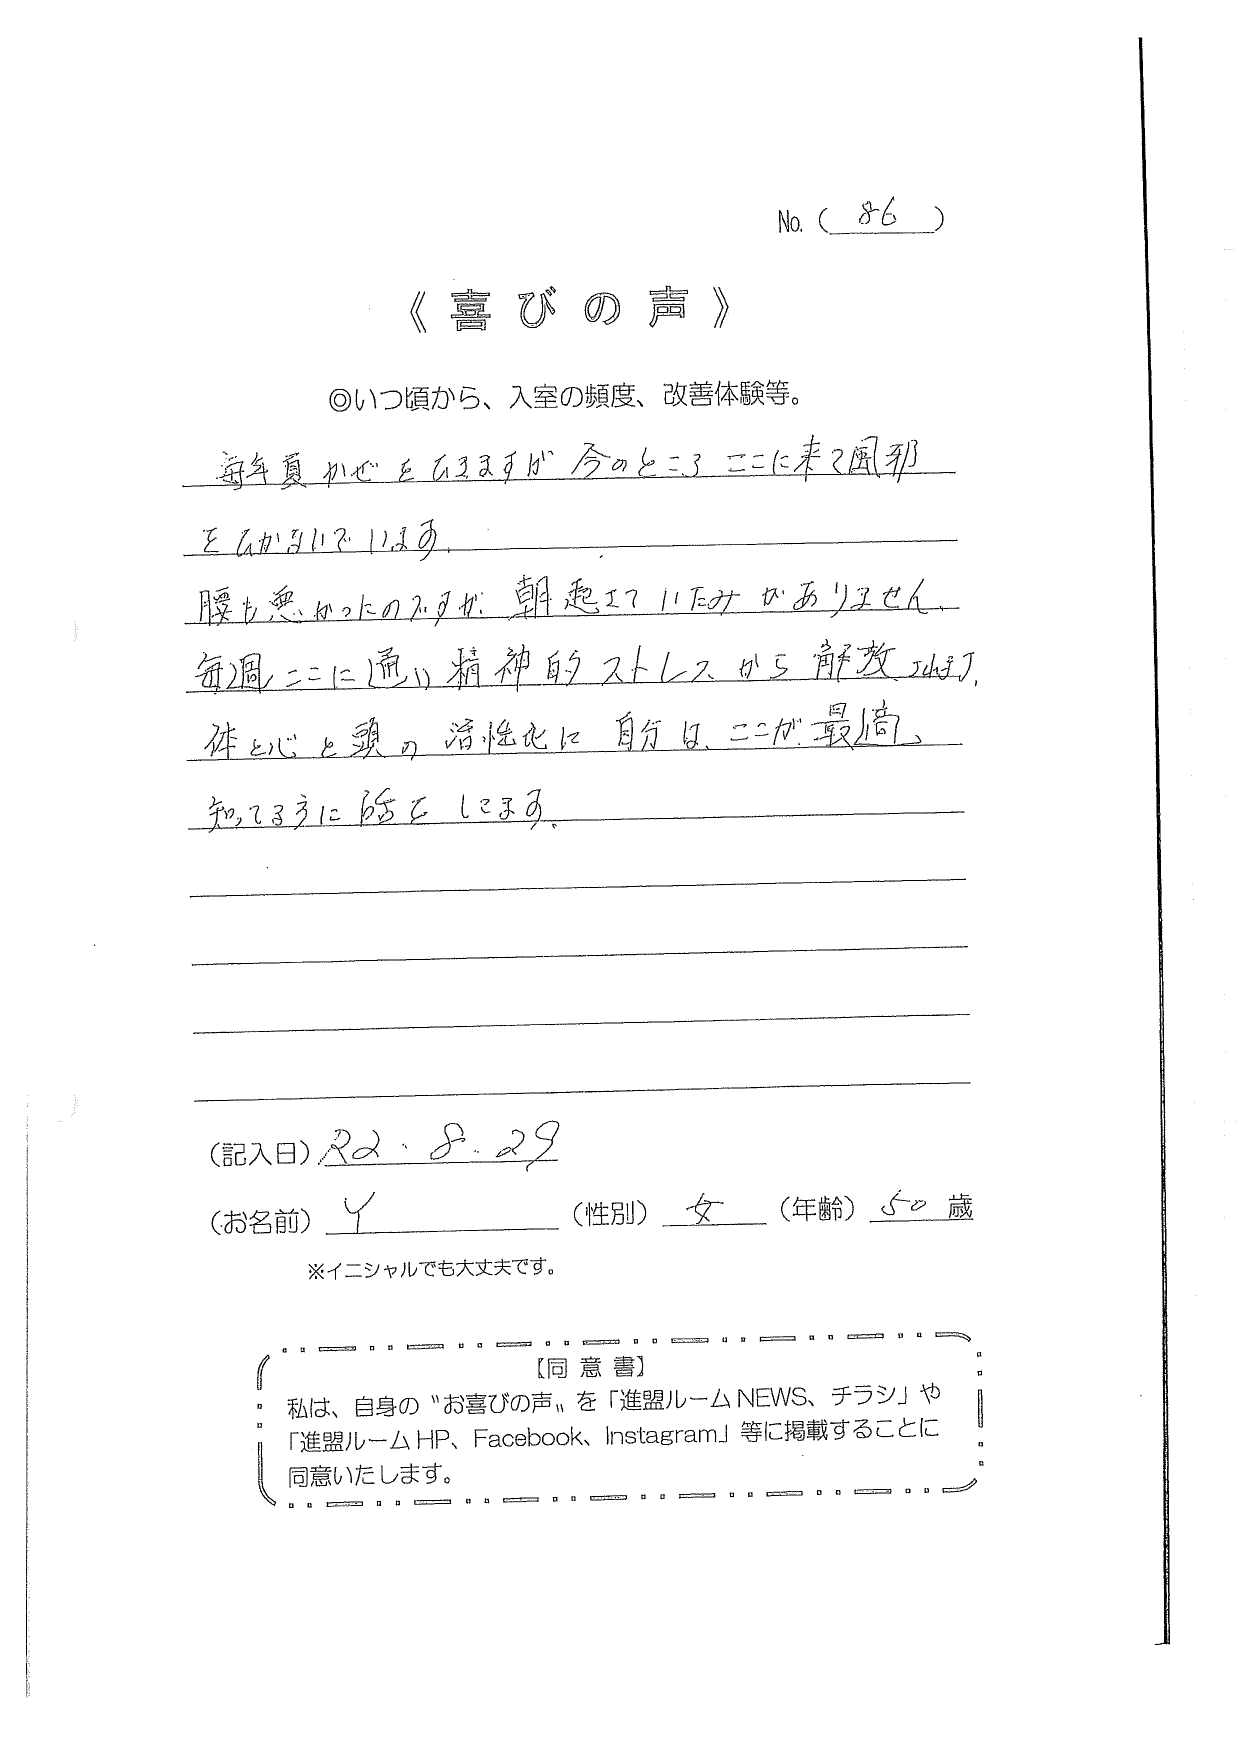 No.( 86 )
《喜びの声》
◎いつ頃から、入室の頻度、改善体験等。
毎年夏かぜをひきますが 今のところ ここに来て風邪
をひかないでいます。
腰も悪かったのですが、朝起きていたみがありません、
毎週ここに通い精神的ストレスから解放されます。
体と心と頭の活性化に自分は、ここが最適、
知ってる方に話をしてます。
(記入日) R2.8.29
(お名前) Y (性別) 女 (年齢) 50 歳
※イニシャルでも大丈夫です。
【同意書】
私は、自身の〝お喜びの声〟を「進盟ルームNEWS、チラシ」や
「進盟ルームHP、Facebook、Instagram」等に掲載することに
同意いたします。